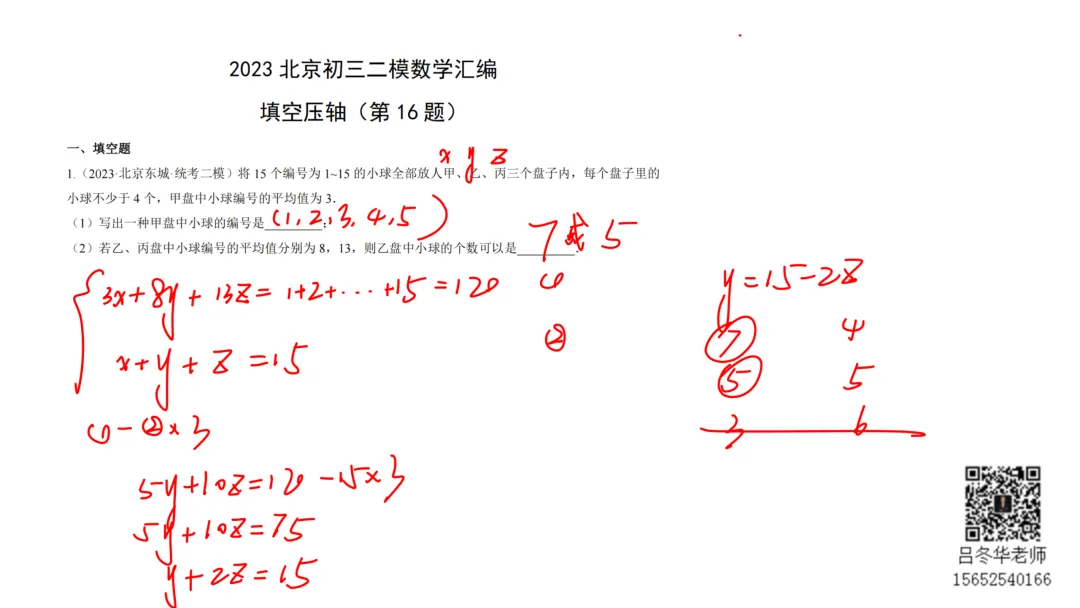 2023 北京初三二模数学汇编
填空压轴（第 16 题）
一、填空题
x y z
1.（2023·北京东城·统考二模）将 15 个编号为 1~15 的小球全部放人甲、乙、丙三个盘子内，每个盘子里的
小球不少于 4 个，甲盘中小球编号的平均值为 3．
（1）写出一种甲盘中小球的编号是 (1, 2, 3, 4, 5) ；
（2）若乙、丙盘中小球编号的平均值分别为 8，13，则乙盘中小球的个数可以是 7或5 ．
3x+8y+13z=1+2+···+15=120 ①
x+y+z=15 ②
①-②×3
5y+10z=120-15×3
5y+10z=75
y+2z=15
y=15-2z
7 4
5 5
3 6
吕冬华老师
15652540166